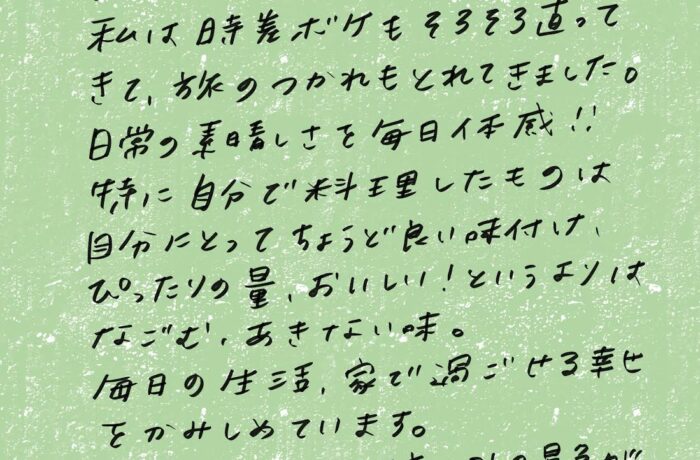 私は時差ボケもそろそろ直って
きて、旅のつかれもとれてきました。
日常の素晴しさを毎日体感!!
特に自分で料理したものは
自分にとってちょうど良い味付け、
ぴったりの量、おいしい!というよりは
なごむ、あきない味。
毎日の生活、家で過ごせる幸せ
をかみしめています。